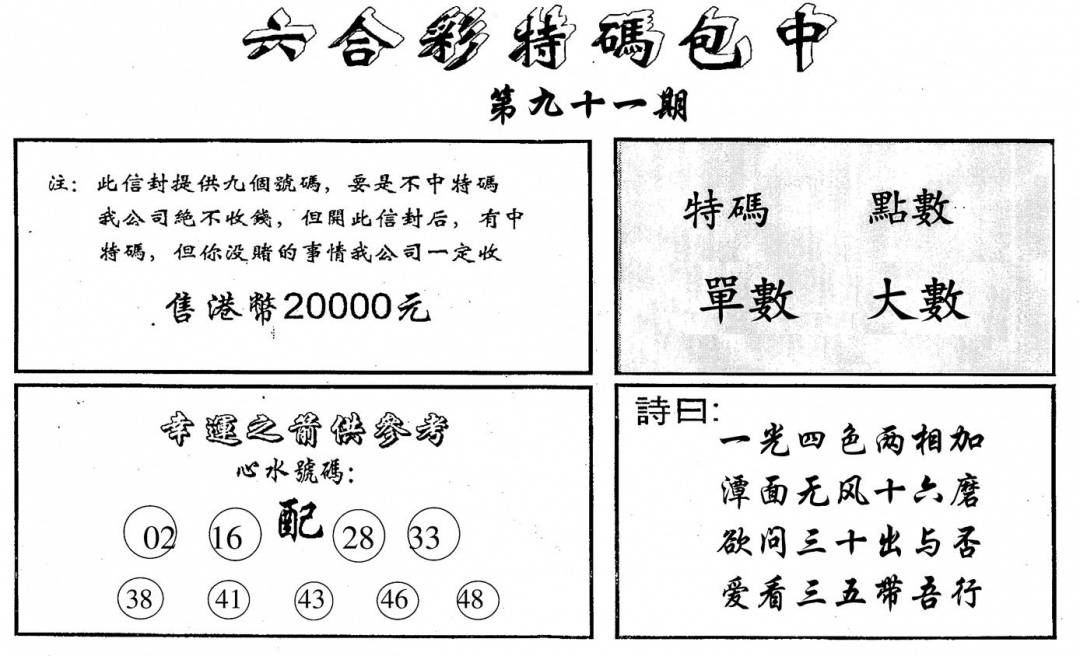 六合彩特碼包中
第九十一期
注：此信封提供九個號碼，要是不中特碼
我公司絕不收錢，但開此信封后，有中
特碼，但你没賭的事情我公司一定收
售港幣20000元
特碼 點數
單數 大數
幸運之箭供參考
心水號碼：
02 16 配 28 33
38 41 43 46 48
詩曰：
一光四色两相加
潭面无风十六磨
欲问三十出与否
爱看三五帶吾行